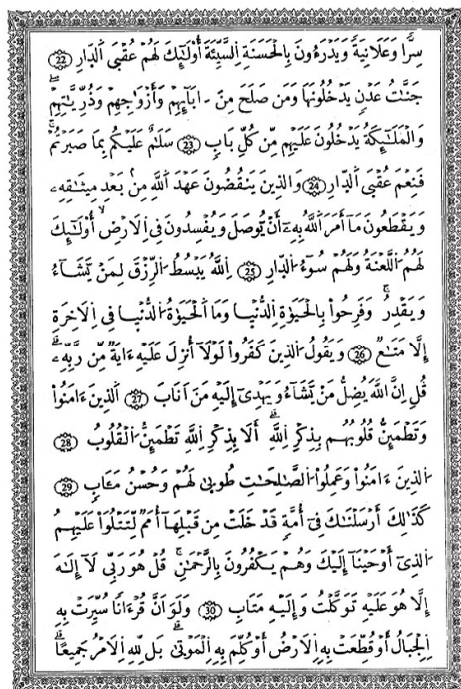 سِرّٗا وَعَلَانِيَةٗ وَيَدْرَءُونَ بِالْحَسَنَةِ اِ۬لسَّيِّئَةَ أُوْلَٰٓئِكَ لَهُمْ عُقْبَى اَ۬لدّ۪ارِ 22
جَنَّٰتُ عَدْنٖ يَدْخُلُونَهَا وَمَن صَلَحَ مِنَ اٰبَآئِهِمْ وَأَزْوَٰجِهِمْ وَذُرِّيَّٰتِهِمْ
وَالْمَلَٰٓئِكَةُ يَدْخُلُونَ عَلَيْهِم مِّن كُلِّ بَابٖ 23 سَلَٰمٌ عَلَيْكُم بِمَا صَبَرْتُمْ
فَنِعْمَ عُقْبَى اَ۬لدّ۪ارِ 24 وَالذِينَ يَنقُضُونَ عَهْدَ اَ۬للَّهِ مِنۢ بَعْدِ مِيثَٰقِهِۦ
وَيَقْطَعُونَ مَآ أَمَرَ اَ۬للَّهُ بِهِۦٓ أَنْ يُّوصَلَ وَيُفْسِدُونَ فِے اِ۬لَارْضِ أُوْلَٰٓئِكَ
لَهُمُ اُ۬للَّعْنَةُ وَلَهُمْ سُوٓءُ اُ۬لدّ۪ارِ 25 اِ۬للَّهُ يَبْسُطُ اُ۬لرِّزْقَ لِمَنْ يَّشَآءُ
وَيَقْدِرُ وَفَرِحُواْ بِالْحَيَوٰةِ اِ۬لدُّنْي۪ا وَمَا اَ۬لْحَيَوٰةُ اُ۬لدُّنْي۪ا فِے اِ۬لَاخِرَةِ
إِلَّا مَتَٰعٞ 26 وَيَقُولُ اُ۬لذِينَ كَفَرُواْ لَوْلَآ أُنزِلَ عَلَيْهِ ءَايَةٞ مِّن رَّبِّهِۦ
قُلِ اِنَّ اَ۬للَّهَ يُضِلُّ مَنْ يَّشَآءُ وَيَهْدِےٓ إِلَيْهِ مَنَ اَنَابَ 27 اَ۬لذِينَ ءَامَنُواْ
وَتَطْمَئِنُّ قُلُوبُهُم بِذِكْرِ اِ۬للَّهِ أَلَا بِذِكْرِ اِ۬للَّهِ تَطْمَئِنُّ اُ۬لْقُلُوبُ 28
اُ۬لذِينَ ءَامَنُواْ وَعَمِلُواْ اُ۬لصَّٰلِحَٰتِ طُوب۪يٰ لَهُمْ وَحُسْنُ مَـَٔابٖ 29
كَذَٰلِكَ أَرْسَلْنَٰكَ فِےٓ أُمَّةٖ قَدْ خَلَتْ مِن قَبْلِهَآ أُمَمٞ لِّتَتْلُوَاْ عَلَيْهِمُ
اُ۬لذِےٓ أَوْحَيْنَآ إِلَيْكَ وَهُمْ يَكْفُرُونَ بِالرَّحْمَٰنِ قُلْ هُوَ رَبِّے لَآ إِلَٰهَ
إِلَّا هُوَ عَلَيْهِ تَوَكَّلْتُ وَإِلَيْهِ مَتَابِ 30 وَلَوَ اَنَّ قُرْءَانٗا سُيِّرَتْ بِهِ
اِ۬لْجِبَالُ أَوْ قُطِّعَتْ بِهِ اِ۬لَارْضُ أَوْ كُلِّمَ بِهِ اِ۬لْمَوْت۪يٰ بَل لِّلهِ اِ۬لَامْرُ جَمِيعًا